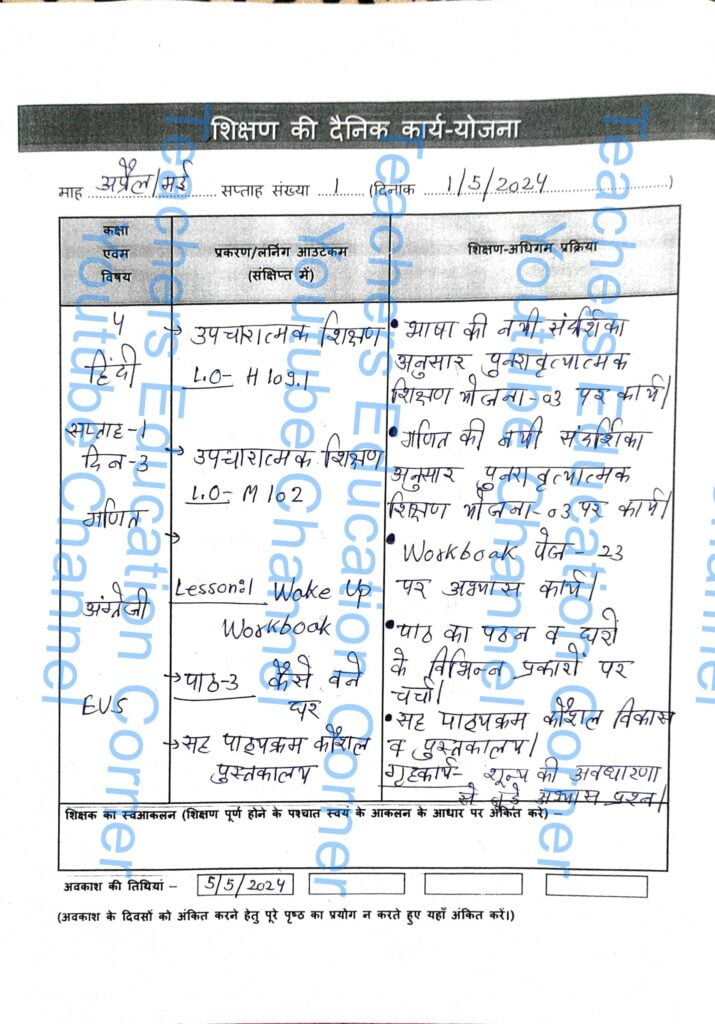 शिक्षण की दैनिक कार्य-योजना
माह अप्रैल/मई सप्ताह संख्या 1 (दिनांक 1/5/2024)
कक्षा
एवम
विषय
प्रकरण/लर्निंग आउटकम
(संक्षिप्त में)
शिक्षण-अधिगम प्रक्रिया
५
हिंदी
सप्ताह-1
दिन-3
गणित
अंग्रेजी
EVS
→ उपचारात्मक शिक्षण
L.O- H 109.1
→ उपचारात्मक शिक्षण
L.O- M 102
→
Lesson:1 Wake Up
Workbook
→ पाठ-3 कैसे बने
घर
→ सह पाठ्यक्रम कौशल
पुस्तकालय
• भाषा की नयी संदर्शिका
अनुसार पुनरावृत्यात्मक
शिक्षण योजना-03 पर कार्य।
• गणित की नयी संदर्शिका
अनुसार पुनरावृत्यात्मक
शिक्षण योजना-03 पर कार्य।
• Workbook पेज - 23
पर अभ्यास कार्य।
• पाठ का पठन व घरो
के विभिन्न प्रकारों पर
चर्चा।
• सह पाठ्यक्रम कौशल विकास
व पुस्तकालय।
गृहकार्य- शून्य की अवधारणा
से जुड़े अभ्यास प्रश्न।
शिक्षक का स्वआकलन (शिक्षण पूर्ण होने के पश्चात स्वयं के आकलन के आधार पर अंकित करें) –
अवकाश की तिथियां – 5/5/2024
(अवकाश के दिवसों को अंकित करने हेतु पूरे पृष्ठ का प्रयोग न करते हुए यहाँ अंकित करें।)
Teachers Education Corner
Youtube Channel
Teachers Education Corner
Youtube Channel
Teachers Education Corner
Youtube Channel